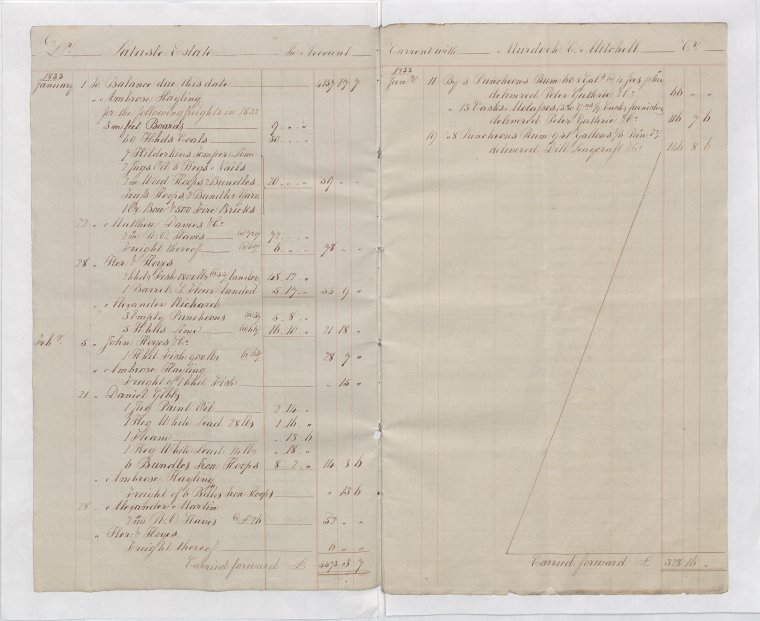 Dr. Lataste Estate In Account
1833
January 1 To Balance due this date 4187 17 7
" " Ambrose Hayling
for the following freights in 1832
3 m feet Boards 9 " "
60 Hhds Coals 30 " "
7 Hilderkins temper Lime
2 Jugs Oil 6 Kegs Nails
2 m Wood Hoops 2 Bundles 20 " " 59 " "
Truss Hoops 2 Bundles Yarn
1 Bow & 500 Fire Bricks
22 " Matthew Davies & Co.
2 m R. O. Staves 72 " "
Freight thereof 6 " " 78 " "
28 " Hoyes
2 hhds Fish landed 48 12 "
1 Barrel Flour landed 5 17 " 54 9 "
" " Alexander Richard
3 Empty Puncheons 5 8 "
5 Hhds Lime 16 10 " 21 18 "
Feby. 5 " John Hoyes & Co.
1 Hhd Fish 28 7 "
" " Ambrose Hayling
Freight of 1 hhd Fish " 15 "
21 " Daniel Gibbs
1 Jug Paint Oil 2 14 "
1 Keg White Lead 28 lbs 1 16 "
1 " 13 6
1 Keg White Lead 14 lbs " 18 "
6 Bundles Iron Hoops 8 2 " 14 3 6
" " Ambrose Hayling
Freight of 6 Bdles Iron Hoops " 13 6
28 " Alexander Martin
2 m R. O. Staves @ £26 52 " "
" Hoyes
Freight thereof
Carried forward £ 4473 3 7
Current with Murdoch C. Mitchell Cr.
1833
Jany. 11 By 5 Puncheons Rum
delivered Peter Guthrie & Co. 66 " "
" 13 Casks Molasses
delivered Peter Guthrie & Co. 116 7 6
19 " 8 Puncheons Rum 941 Gallons
delivered Dill Leaycraft & Co. 146 8 6
Carried forward £ 328 16 "